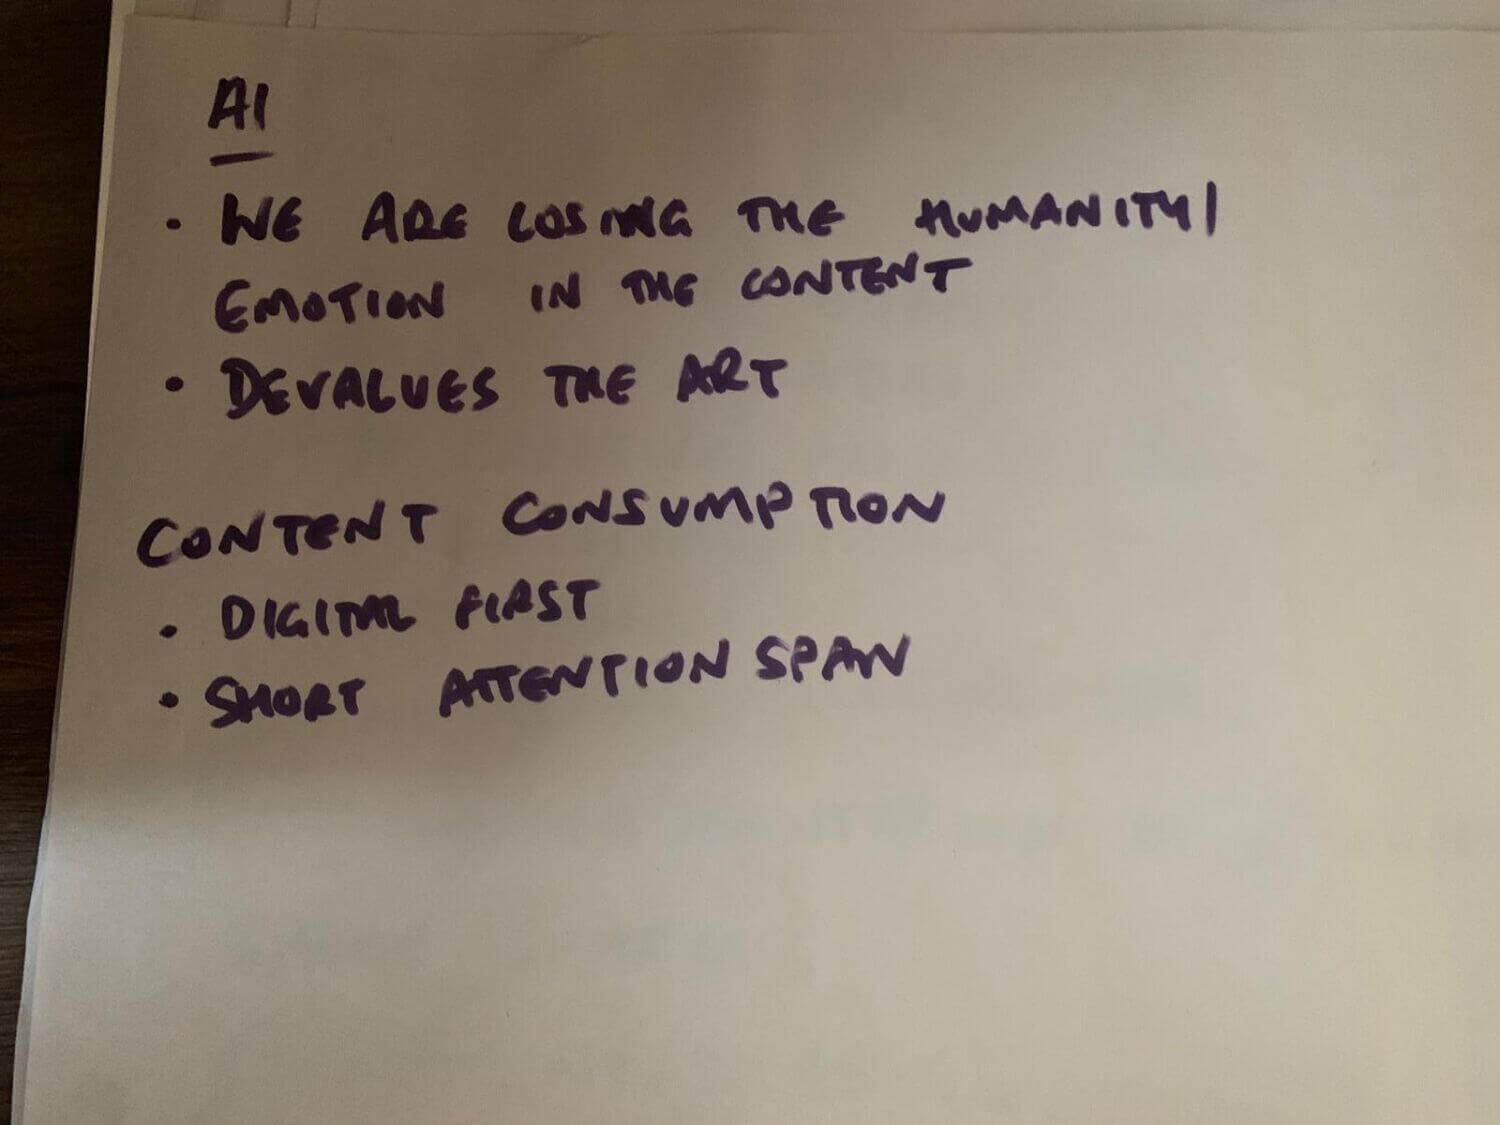 AI
• WE ARE LOSING THE HUMANITY/
EMOTION IN THE CONTENT
• DEVALUES THE ART
CONTENT CONSUMPTION
• DIGITAL FIRST
• SHORT ATTENTION SPAN